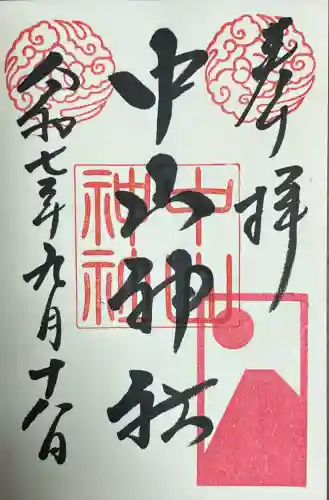 奉拝
中山神社
令和七年九月十八日
中山
神社